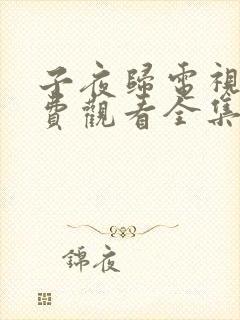 子夜歸電視
費觀看全集
錦夜